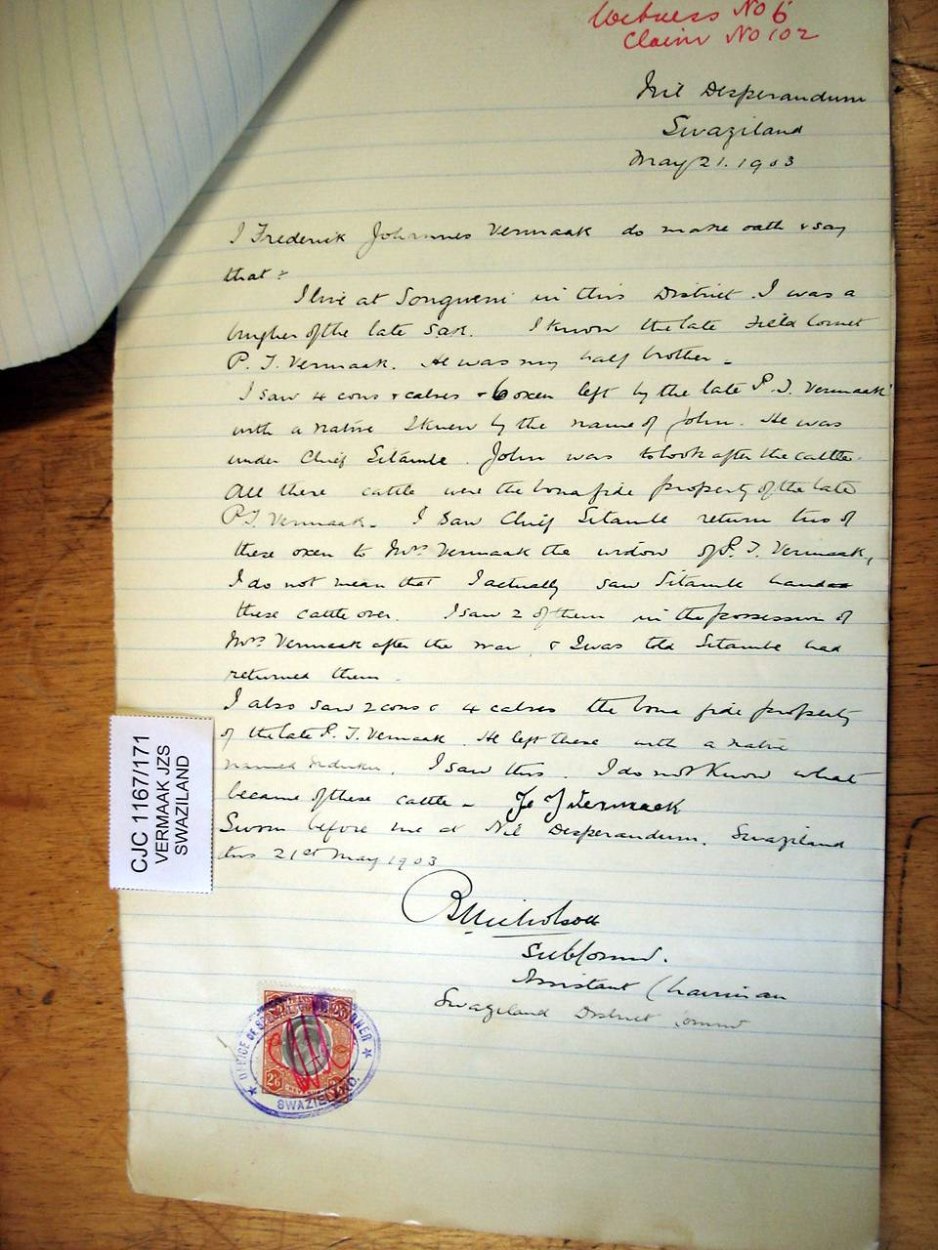 Witness No 6
Claim No 102
Nil Desperandum
Swaziland
May 21. 1903
I Frederik Johannes Vermaak do make oath & say
that :
I live at Songweni in this District. I was a
burgher of the late SAR. I know the late Field Cornet
P. J. Vermaak. He was my half brother -
I saw 4 cows & calves & 6 oxen left by the late P. J. Vermaak
with a native I knew by the name of John. He was
under Chief Sitambe. John was to look after the cattle.
All these cattle were the bona fide property of the late
P J Vermaak. I saw Chief Sitambe return two of
these oxen to Mrs Vermaak the widow of P. J. Vermaak,
I do not mean that I actually saw Sitambe hand
these cattle over. I saw 2 of them in the possession of
Mrs Vermaak after the war, & I was told Sitambe had
returned them.
I also saw 2 cows & 4 calves the bona fide property
of the late P. J. Vermaak. He left these with a native
named. I saw this. I do not know what
became of these cattle - F J Vermaak
Sworn before me at Nil Desperandum, Swaziland
this 21st May 1903
B Nicholson
Sub Commr.
Assistant Chairman
Swaziland District Commr
CJC 1167/171
VERMAAK JZS
SWAZILAND
OFFICE OF
SWAZIELAND
2/6